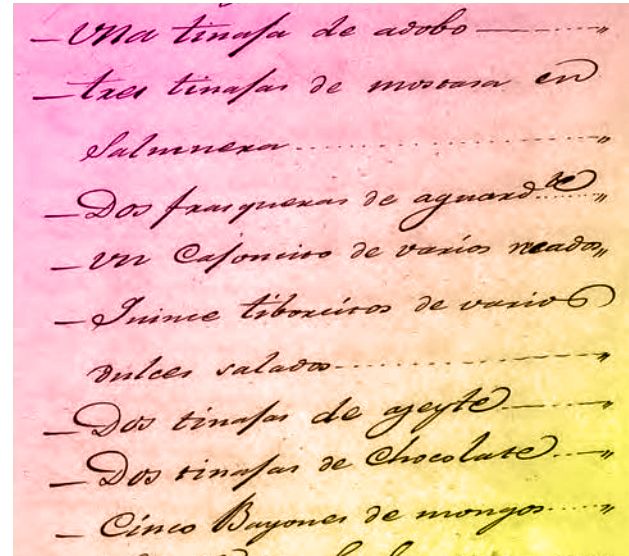 — Una tinaja de adobo — — "
— tres tinajas de mostasa en
Salmuera ........ "
— Dos frasqueras de aguard.te "
— Un Cajoncito de varios "
— Quince tiborcitos de varios
dulces salados ------ "
— Dos tinajas de azeyte — — "
— Dos tinajas de Chocolate ---- "
— Cinco Bayones de mongos ---- "